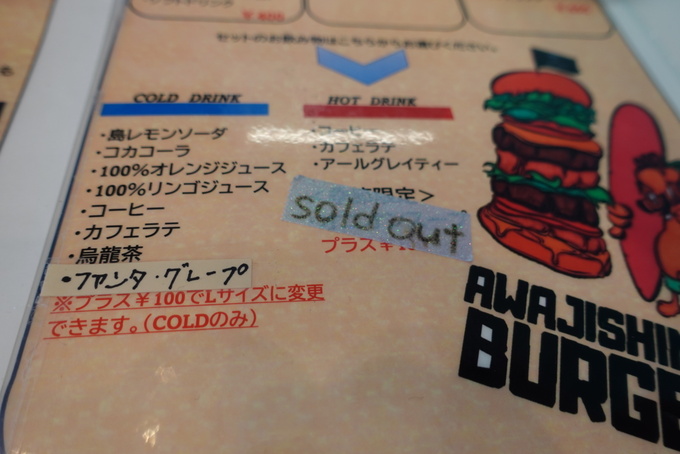 セットのお飲み物はこちらからお選びください。
COLD DRINK
・島レモンソーダ
・コカコーラ
・100%オレンジジュース
・100%リンゴジュース
・コーヒー
・カフェラテ
・烏龍茶
・ファンタ・グレープ
※プラス¥100でLサイズに変更
できます。(COLDのみ)
HOT DRINK
・コーヒー
・カフェラテ
・アールグレイティー
限定>
sold out
プラス¥1
AWAJISHI
BURGE